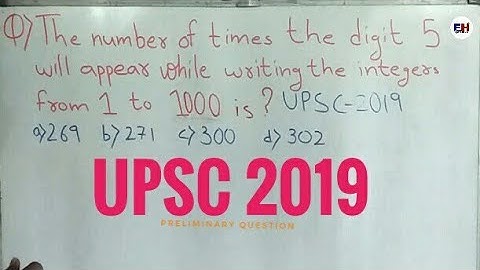 Q) The number of times the digit 5
will appear while writing the integers
from 1 to 1000 is? UPSC-2019
a) 269 b) 271 c) 300 d) 302
UPSC 2019
PRELIMINARY QUESTION
EH